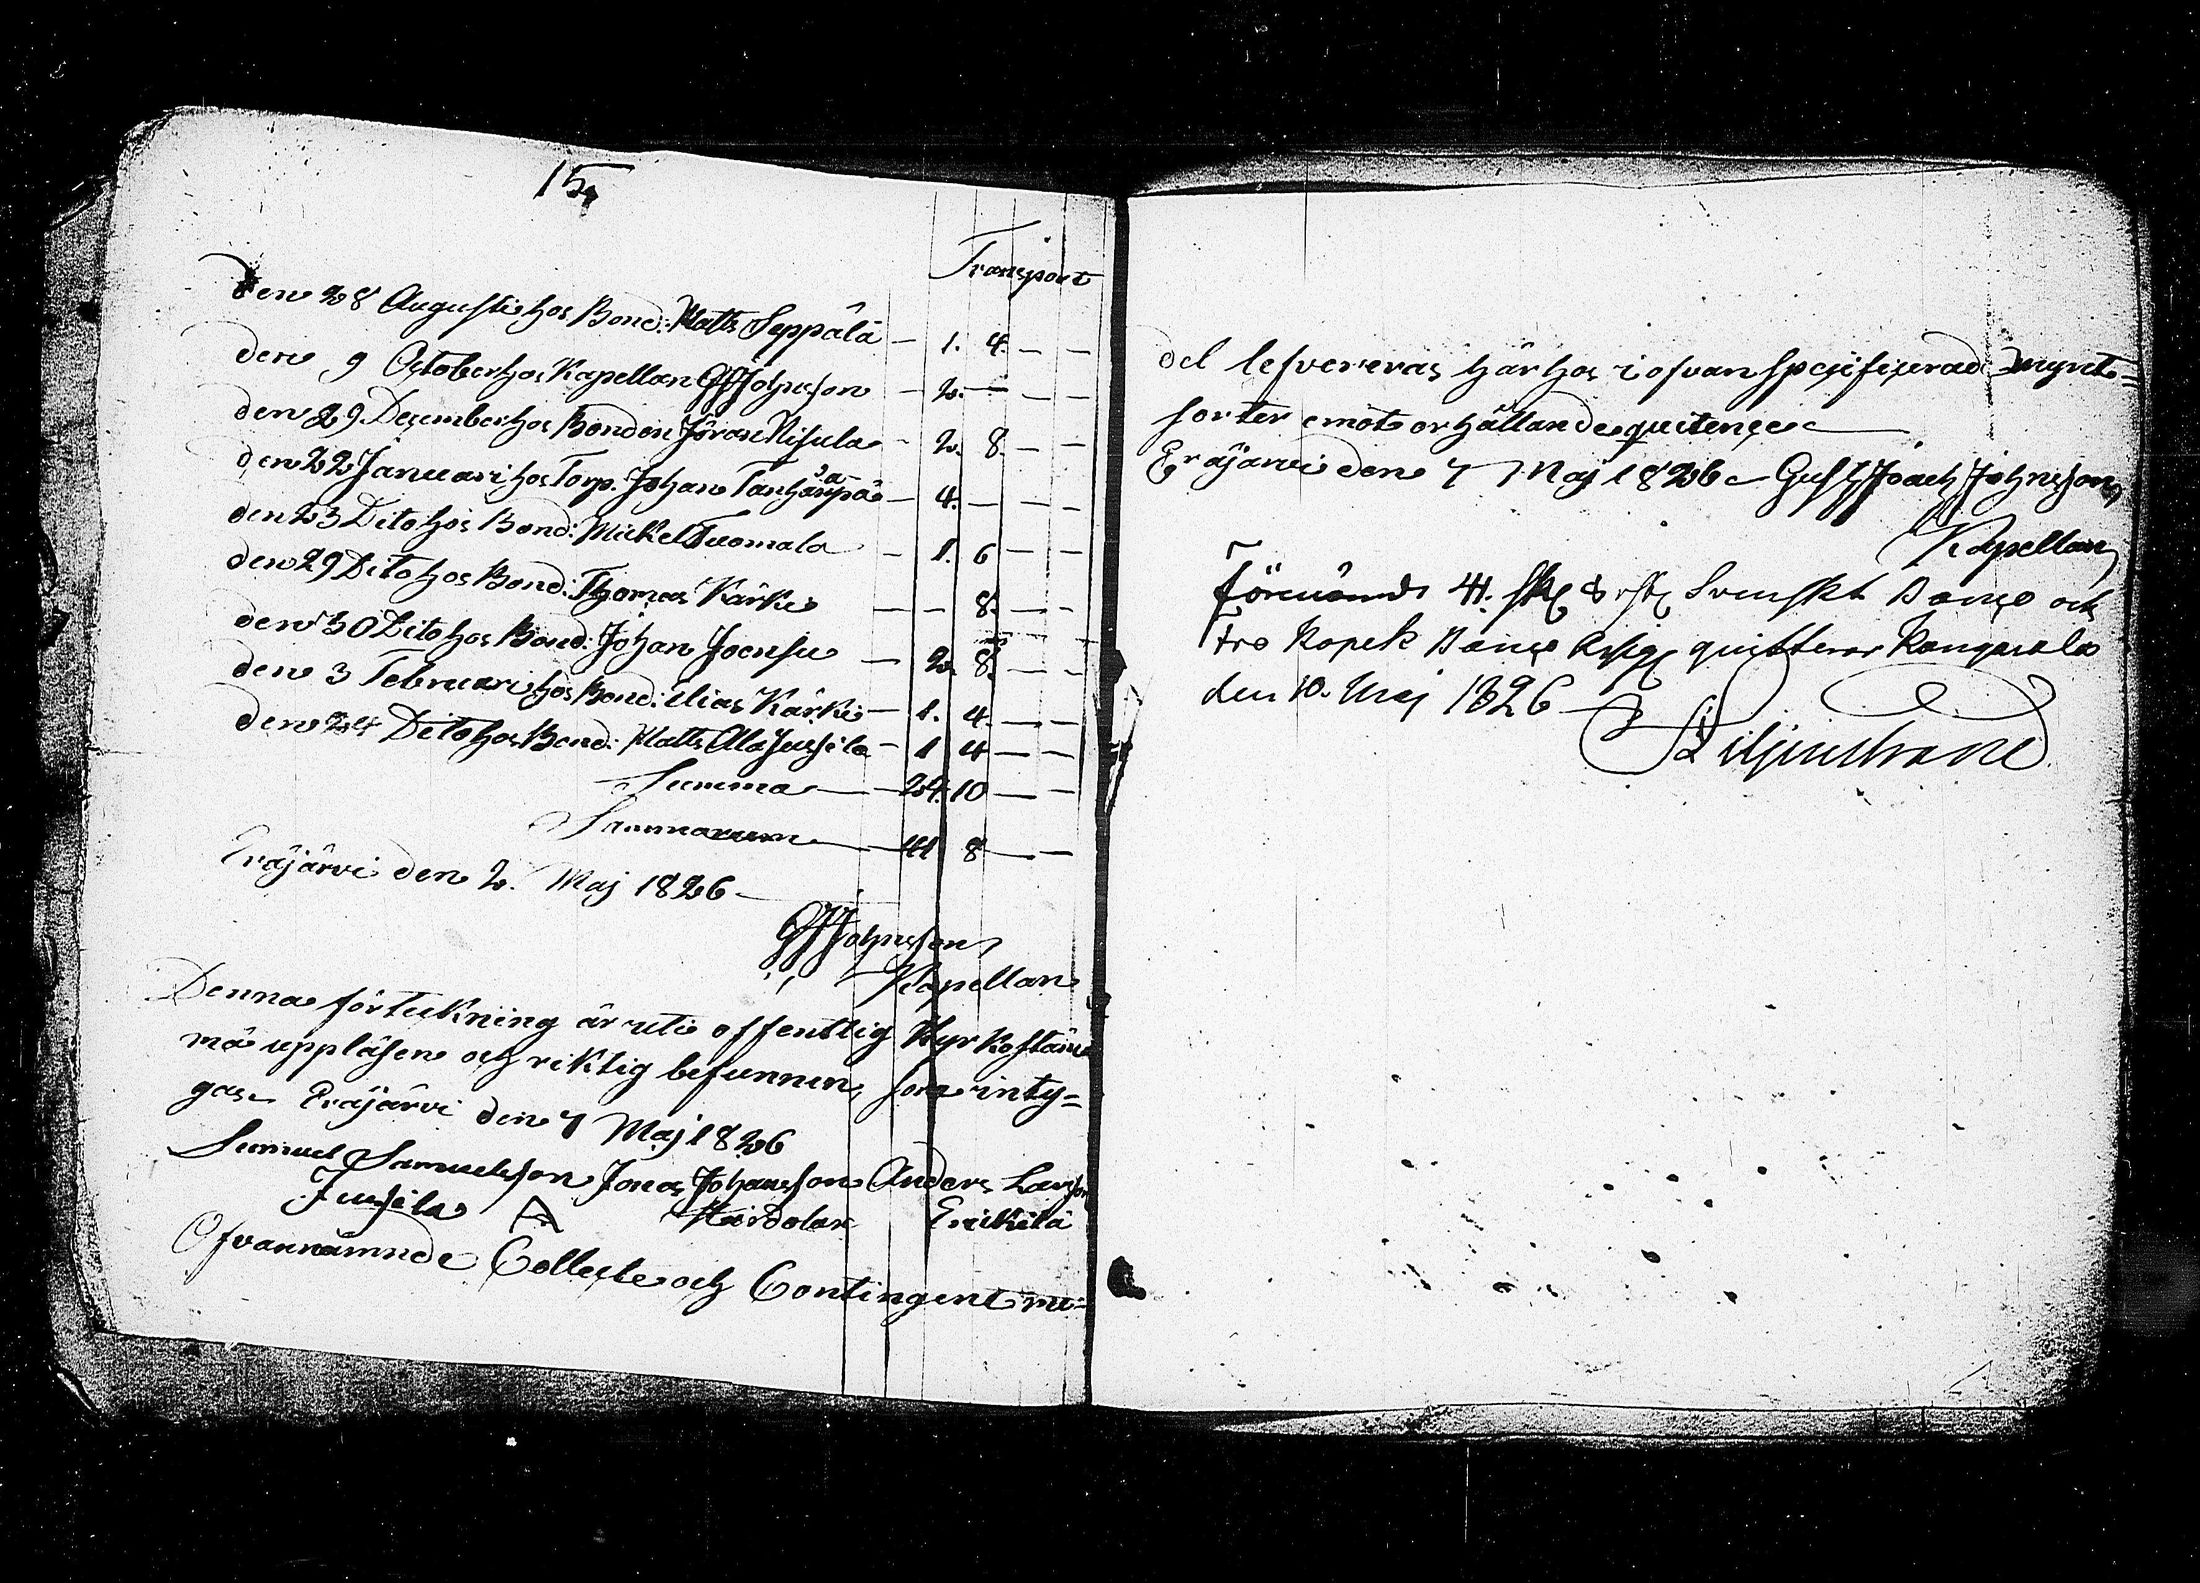 15
Transport
den 28 Augusti hos Bond: Matts Seppälä — 1. 4. — —
den 9 October hos Kapellan GJJohnsson — 2. — — —
den 29 December hos Bonden Jöran Nisula — 2. 8. — —
den 22 Januari hos Torp. Johan Tanhuanpä — 4. — — —
den 23 Dito hos Bond: Mickel Tuomala — 1. 6 — —
den 29 Dito hos Bond: Thomas Kärki — — 8. — —
den 30 Dito hos Bond: Johan Joensu — 2. 8. — —
den 3 Februari hos Bond: Elias Kärki — 1. 4. — —
den 24 Dito hos Bond: Matts Ala Jussila — 1 4 — —
Summa — 24. 10 — —
Summarum — 41 8 — —
Eräjärvi den 2. Maj 1826 —
GJJohnsson
Kapellan
Denna förteckning är uti offentlig Kyrkostäm
ma uppläsen och riktig befunnen, som inty=
gas. Eräjärvi den 7 Maj 1826
Samuel Samuelsson Jonas Johansson Anders Larsson
Jussila A Erikilä
Ofvannämnde Collecte och Contingent me=
del lefvereras härhos i ofvan specificerade mynt=
sorter emot erhållande quitence —
Eräjärvi den 7 Maj 1826 — Gust Joach Johnsson
Kapellan
Förenämnde 41. sk 8 rst Svenskt Banco och
tre Kopek Banco Assig quitterar Kangasala
den 10. Maj 1826 —
Liljenstrand